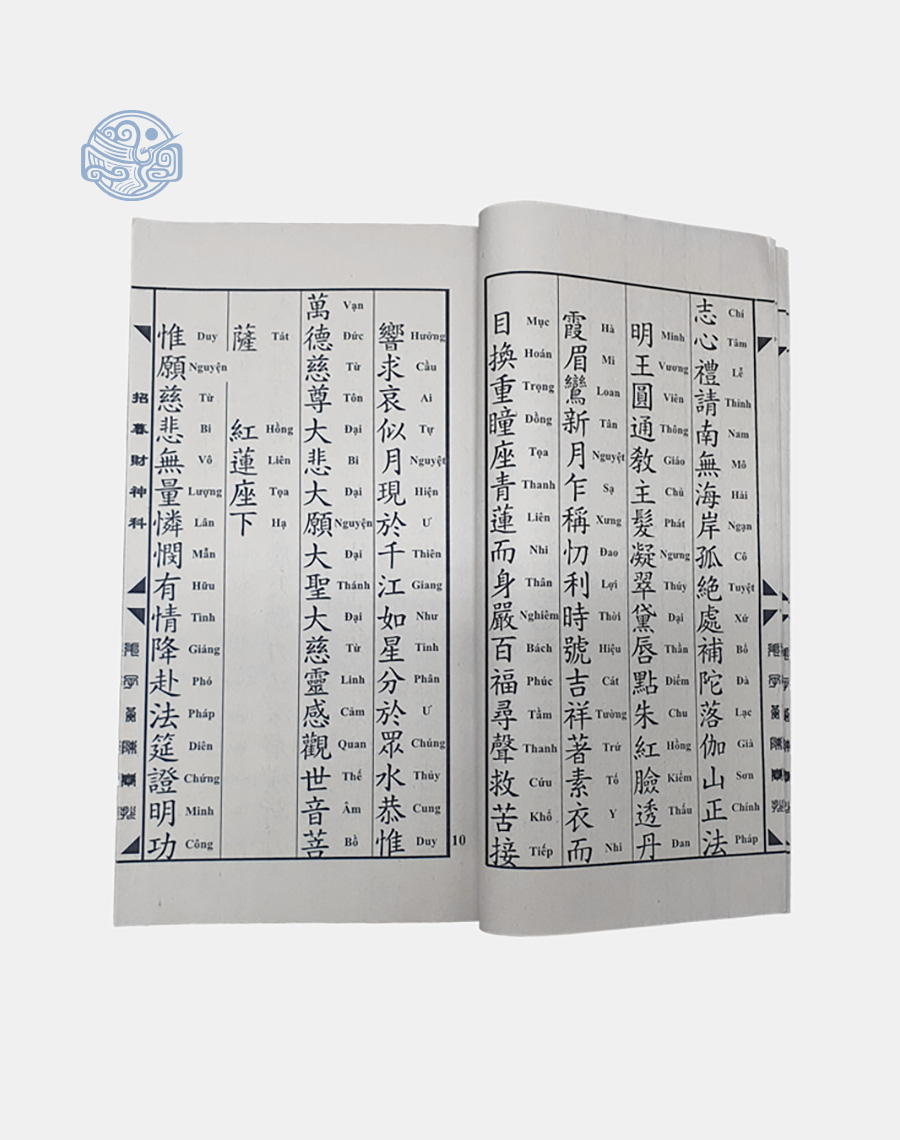 志心禮請南無海岸孤絕處補陀落伽山正法
Chí Tâm Lễ Thỉnh Nam Mô Hải Ngạn Cô Tuyệt Xứ Bổ Đà Lạc Già Sơn Chính Pháp
明王圓通敎主髮凝翠黛唇點朱紅臉透丹
Minh Vương Viên Thông Giáo Chủ Phát Ngưng Thúy Đại Thần Điểm Chu Hồng Kiểm Thấu Đan
霞眉鸞新月乍稱忉利時號吉祥著素衣而
Hà Mi Loan Tân Nguyệt Sạ Xưng Đao Lợi Thời Hiệu Cát Tường Trứ Tố Y Nhi
目換重瞳座青蓮而身嚴百福尋聲救苦接
Mục Hoán Trọng Đồng Tọa Thanh Liên Nhi Thân Nghiêm Bách Phúc Tầm Thanh Cứu Khổ Tiếp
10
響求哀似月現於千江如星分於眾水恭惟
Hưởng Cầu Ai Tự Nguyệt Hiện Ư Thiên Giang Như Tinh Phân Ư Chúng Thủy Cung Duy
萬德慈尊大悲大願大聖大慈靈感觀世音菩
Vạn Đức Từ Tôn Đại Bi Đại Nguyện Đại Thánh Đại Từ Linh Cảm Quan Thế Âm Bồ
薩 紅蓮座下
Tát Hồng Liên Tọa Hạ
惟願慈悲無量憐憫有情降赴法筵證明功
Duy Nguyện Từ Bi Vô Lượng Lân Mẫn Hữu Tình Giáng Phó Pháp Diên Chứng Minh Công
招春財神科